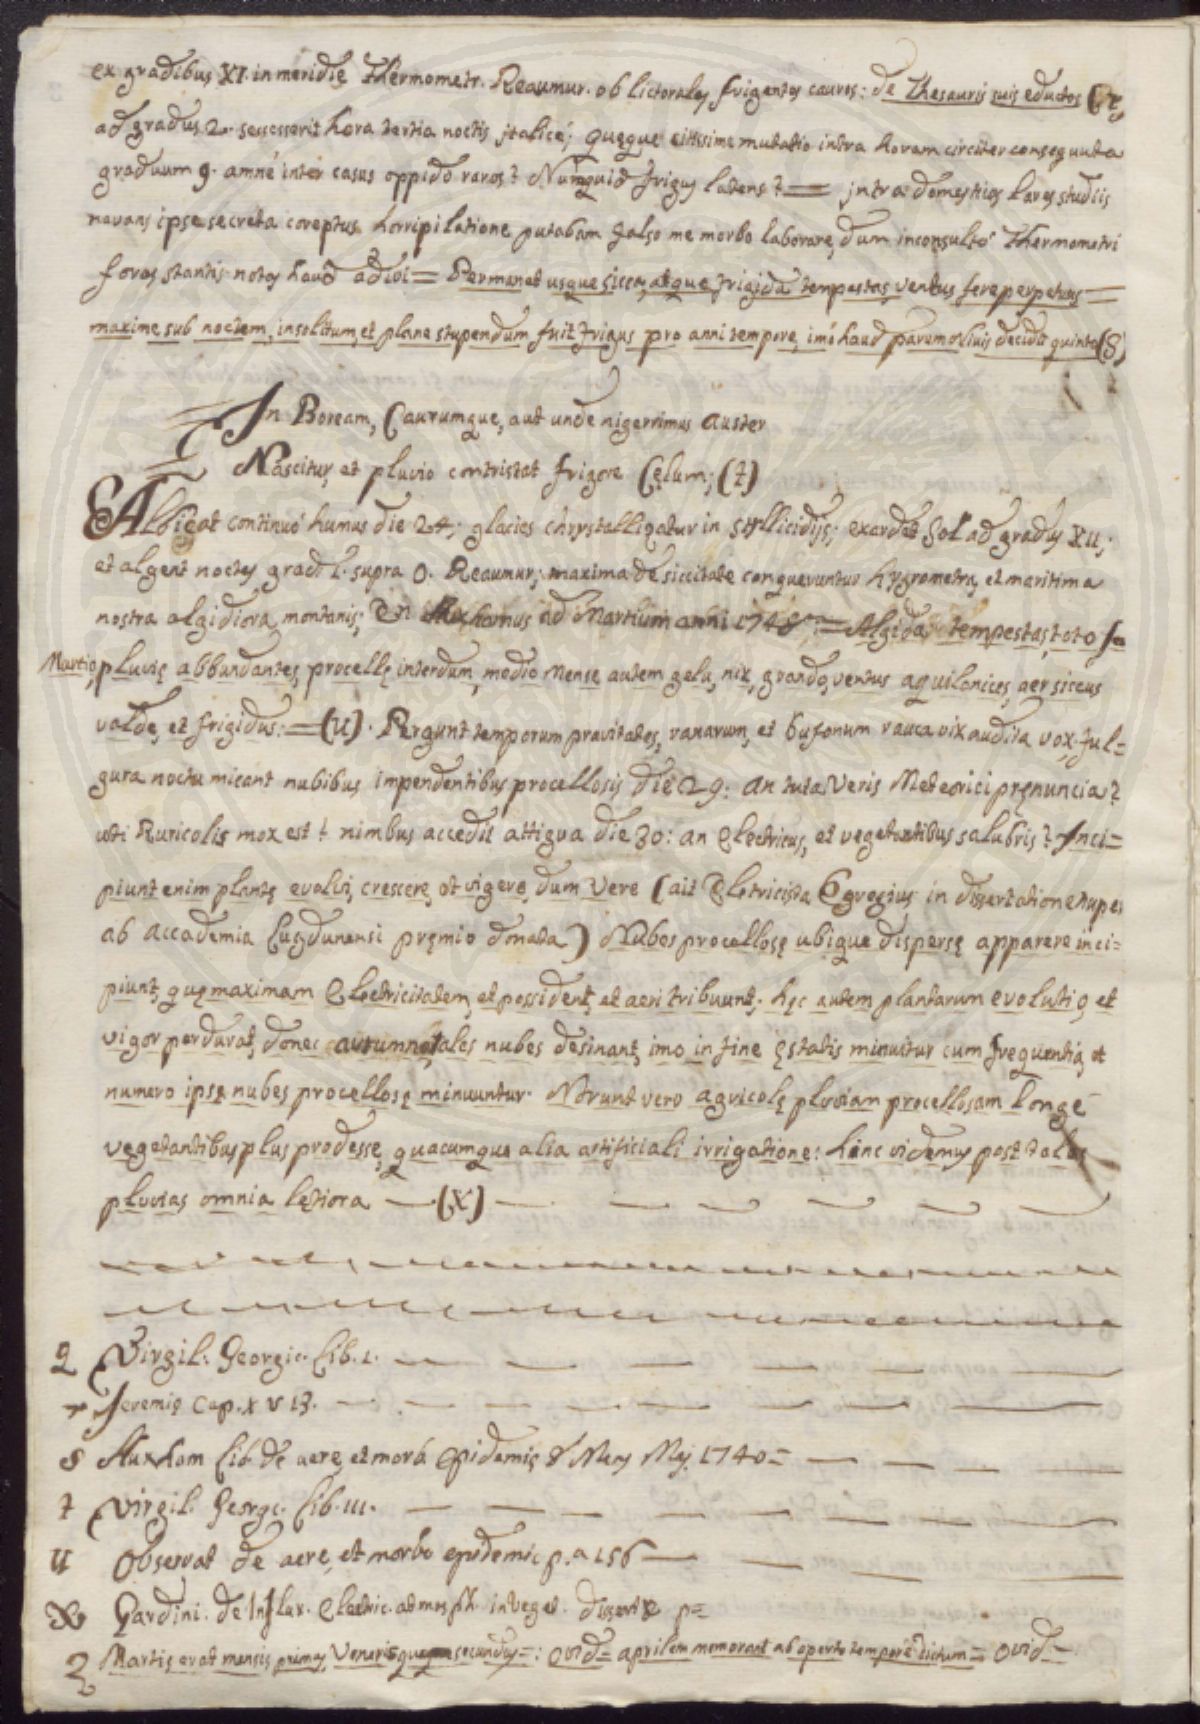 ex gradibus XI. in meridie Thermometr. Reaumur. ob lictorales frigentes cauros: de Thesauris suis eductos (r,
ad gradus 2. sescesserit hora tertia noctis italicè; quęque citissime mutatio intra horam circiter consequuta
graduum 9. amnè inter casus oppidò raros? Numquid frigus latens? = intra domesticos lares studiis
navans ipse secreta correptus horripilatione putabam falso me morbo laborare, dum inconsultò Thermometri
foras stantis notas haud adivi = Permanet usque sicca, atque frigida tempestas, ventus fere perpetuus =
maxime sub noctem, insolitum, et plane stupendum fuit frigus pro anni tempore, imò haud parum oliuis decidit quinto (S)
In Boream, Caurumque, aut unde nigerrimus Auster
Nascitur, et pluvio contristat frigore Cęlum; (t)
Albicat continuò humus die 24; glacies chrystalligatur in stillicidijs; exardet Sol ad gradus XII;
et algent noctes grad. 1. supra 0. Reaumur; maxima de siccitate conqueruntur hygrometra, et maritima
nostra algidiora montanis; En Huxhamus ad Martium anni 1748 = Algida tempestas, toto
Martio, pluvię abbundantes, procellę interdum, medio mense autem gelu, nix, grando, ventus aquilonices, aer siccus
valde, et frigidus: = (u). Pergunt temporum pravitates, ranarum, et bufonum rauca vix audita vox, ful=
gura noctu micant nubibus impendentibus procellosis die 29: an tuta Veris Meteorici pręnuncia?
uti Ruricolis mox est? nimbus accedit attigua die 30: an electricus, et vegetantibus salubris? Inci=
piunt enim plantę evolvi, crescere, et vigere, dum Vere (ait Eletricista Egregius in dissertatione nuper
ab Accademia Lugdunensi pręmio donata) Nubes procellosę ubique dispersę apparere inci=
piunt, quę maximam electricitatem, et possident, et aeri tribuunt. hęc autem plantarum evolutio, et
vigor perdurat, donec autumnales nubes desinant, imo in fine ęstatis minuitur cum frequentia, et
numero ipsę nubes procellosę minuuntur. Nòrunt vero agricolę pluviam procellosam longè
vegetantibus plus prodesse, quacumque alia artificiali irrigatione: hinc videmus post tales
pluvias omnia lętiora — (X)
q Virgil: Georgic. Lib. 1.
r Jeremię Cap. X v 13.
S Huxham Lib. de aere, et morb. Epidemic & Mens Maj. 1740 =
t Virgil. Georgc. Lib. III.
u Observat de aere, et morbo epidemic p.a 156
X Gardini. de Influx. electric. atmosph. in Veget. dissert p =
z Martis erat mensis primus, Venerisque secundus = : Ovid = aprilem memorant ab aperto tempore dictum = Ovid =